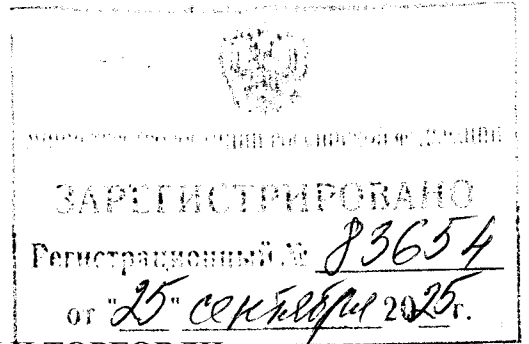 МИНИСТЕРСТВО ЮСТИЦИИ РОССИЙСКОЙ ФЕДЕРАЦИИ
ЗАРЕГИСТРИРОВАНО
Регистрационный № 83654
от "25" сентября 2025г.